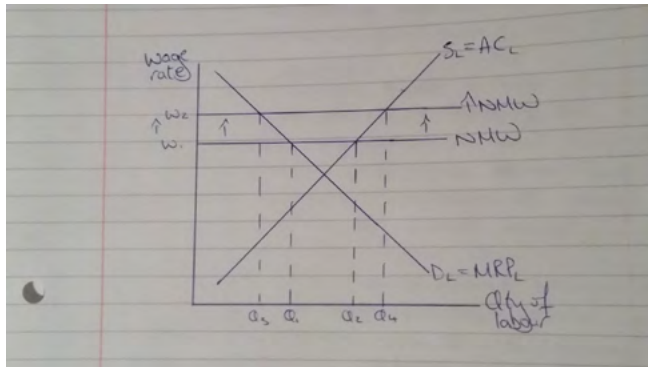 Wage
rate
SL=ACL
W2
↑
↑
↑
↑NMW
W1
NMW
DL=MRPL
Q3
Q1
Q2
Q4
Qty of
labour